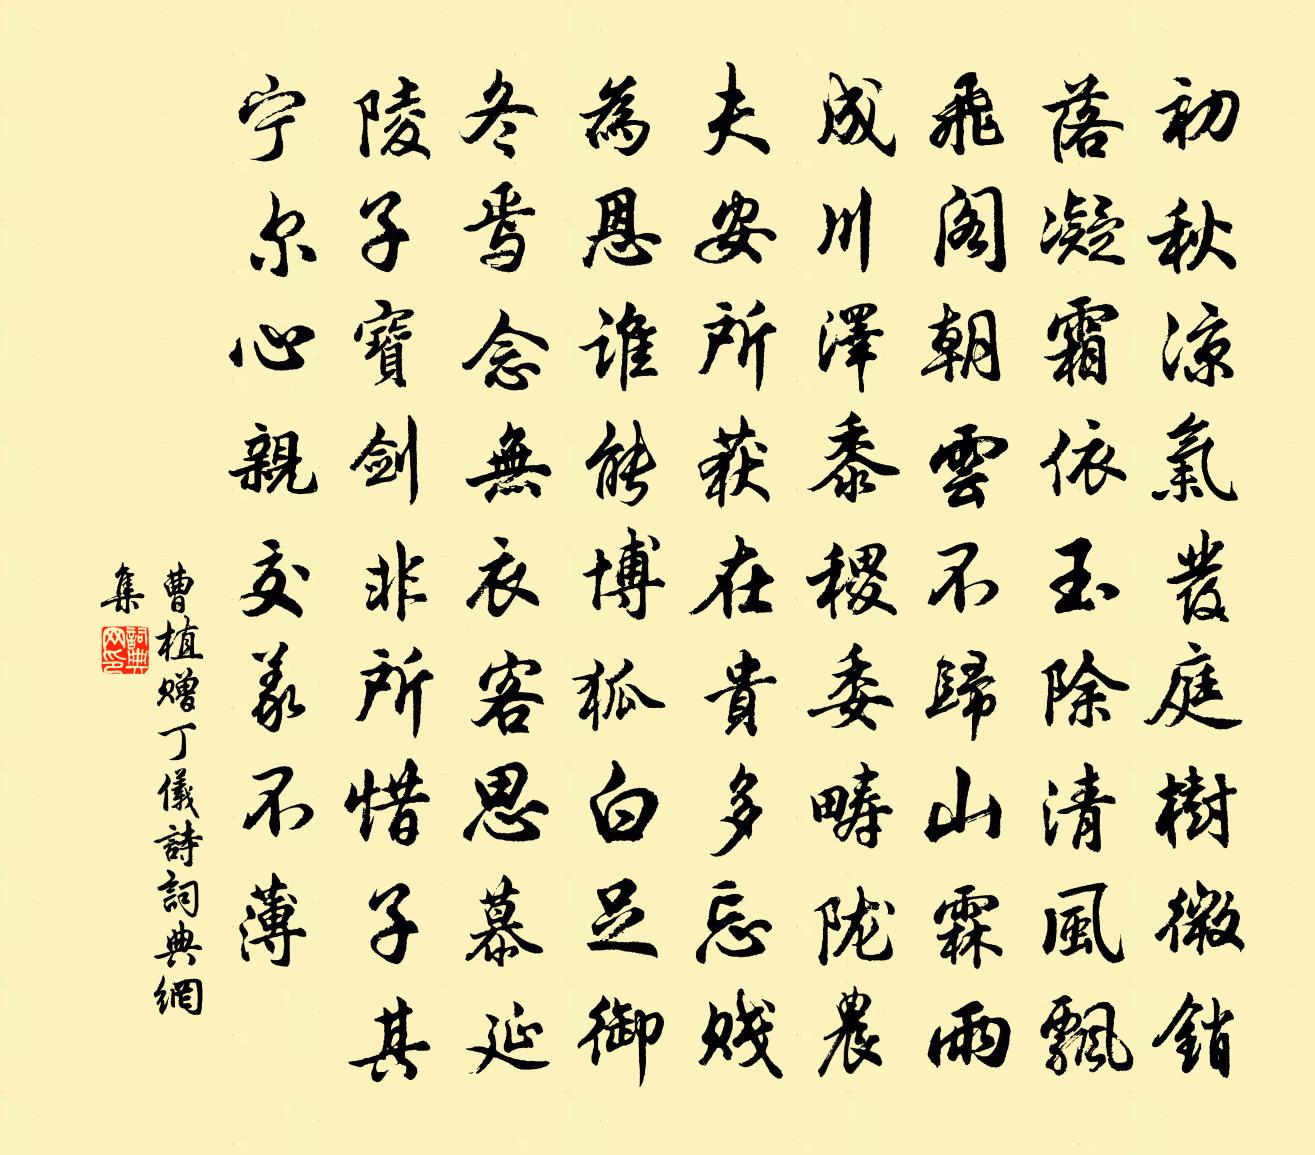 初秋涼氣發庭樹微銷
落凝霜依玉除清風飄
飛閣朝雲不歸山霖雨
成川澤黍稷委疇陇農
夫安所获在貴多忘贱
為恩誰能博狐白足御
冬焉念無衣客思慕延
陵子寶剑非所惜子其
宁尔心親交義不薄
曹植赠丁儀詩詞典網
集
詞典网印